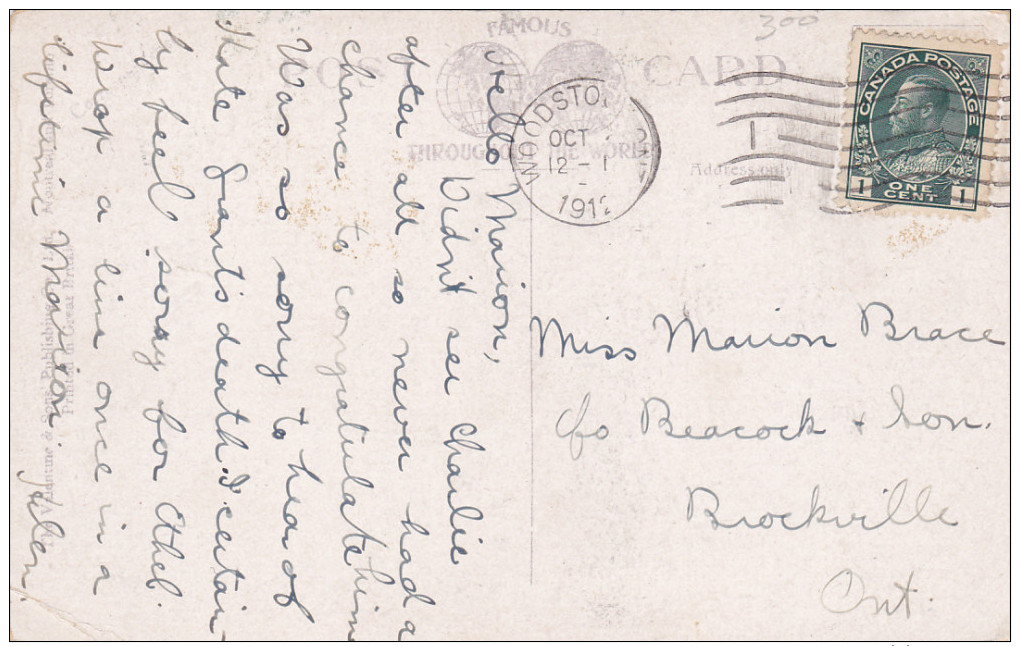 300
FAMOUS
POST CARD
THROUGHOUT THE WORLD
Address only
WOODSTO
OCT
12 - 1
1912
CANADA POSTAGE
1 ONE CENT 1
Hello Marion,
Didn't see Charlie
after all so never had a
chance to congratulate him
Was so sorry to hear of
Kate Grant's death. I certain-
ly feel sorry for Ethel.
Wrap a line once in a
lifetime Marion
Helen.
Miss Marion Brace
c/o Beacock & Son.
Brockville
Ont.
Valentine & Sons Publishing
Printed in Great Britain